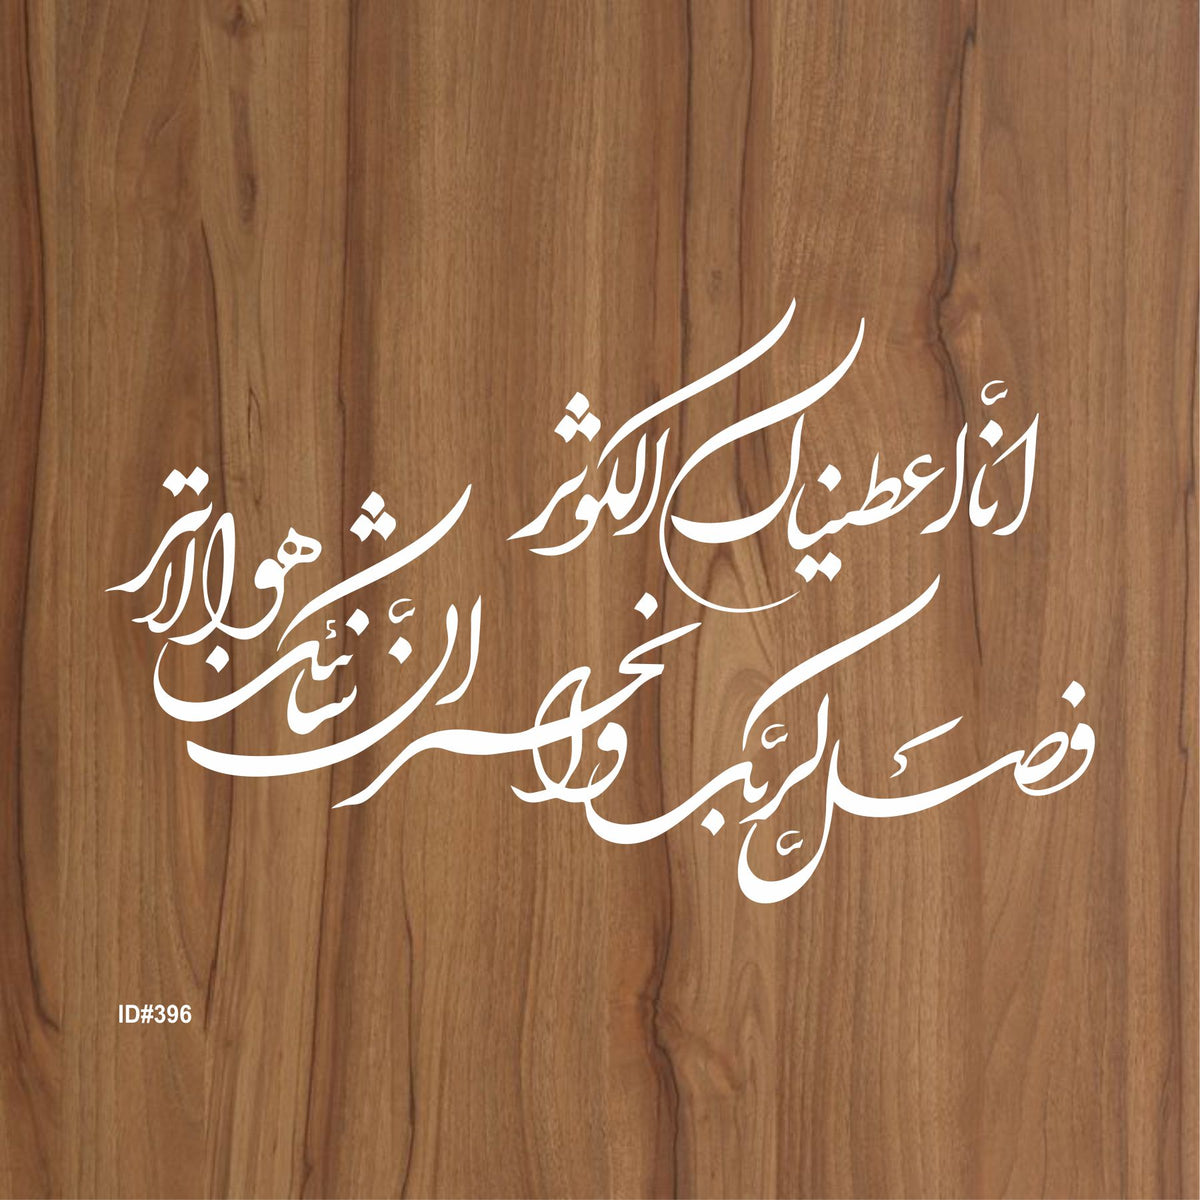 انّا اعطیناک الکوثر
فصَلِّ لربّک وانحر
انَّ شانئک هو الابتر
ID#396